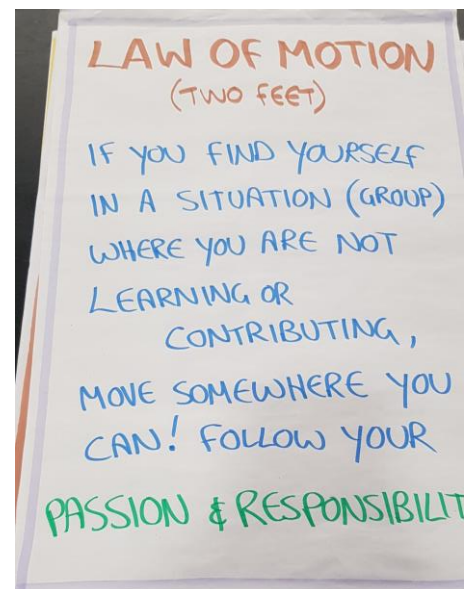 LAW OF MOTION
(TWO FEET)
IF YOU FIND YOURSELF
IN A SITUATION (GROUP)
WHERE YOU ARE NOT
LEARNING OR
CONTRIBUTING,
MOVE SOMEWHERE YOU
CAN! FOLLOW YOUR
PASSION & RESPONSIBILIT